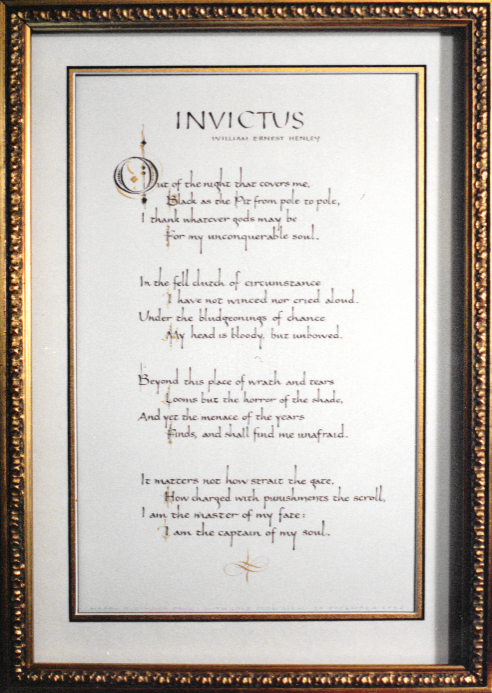 INVICTUS
WILLIAM ERNEST HENLEY
Out of the night that covers me,
Black as the Pit from pole to pole,
I thank whatever gods may be
For my unconquerable soul.
In the fell clutch of circumstance
I have not winced nor cried aloud.
Under the bludgeonings of chance
My head is bloody, but unbowed.
Beyond this place of wrath and tears
Looms but the horror of the shade,
And yet the menace of the years
Finds, and shall find me unafraid.
It matters not how strait the gate,
How charged with punishments the scroll,
I am the master of my fate:
I am the captain of my soul.